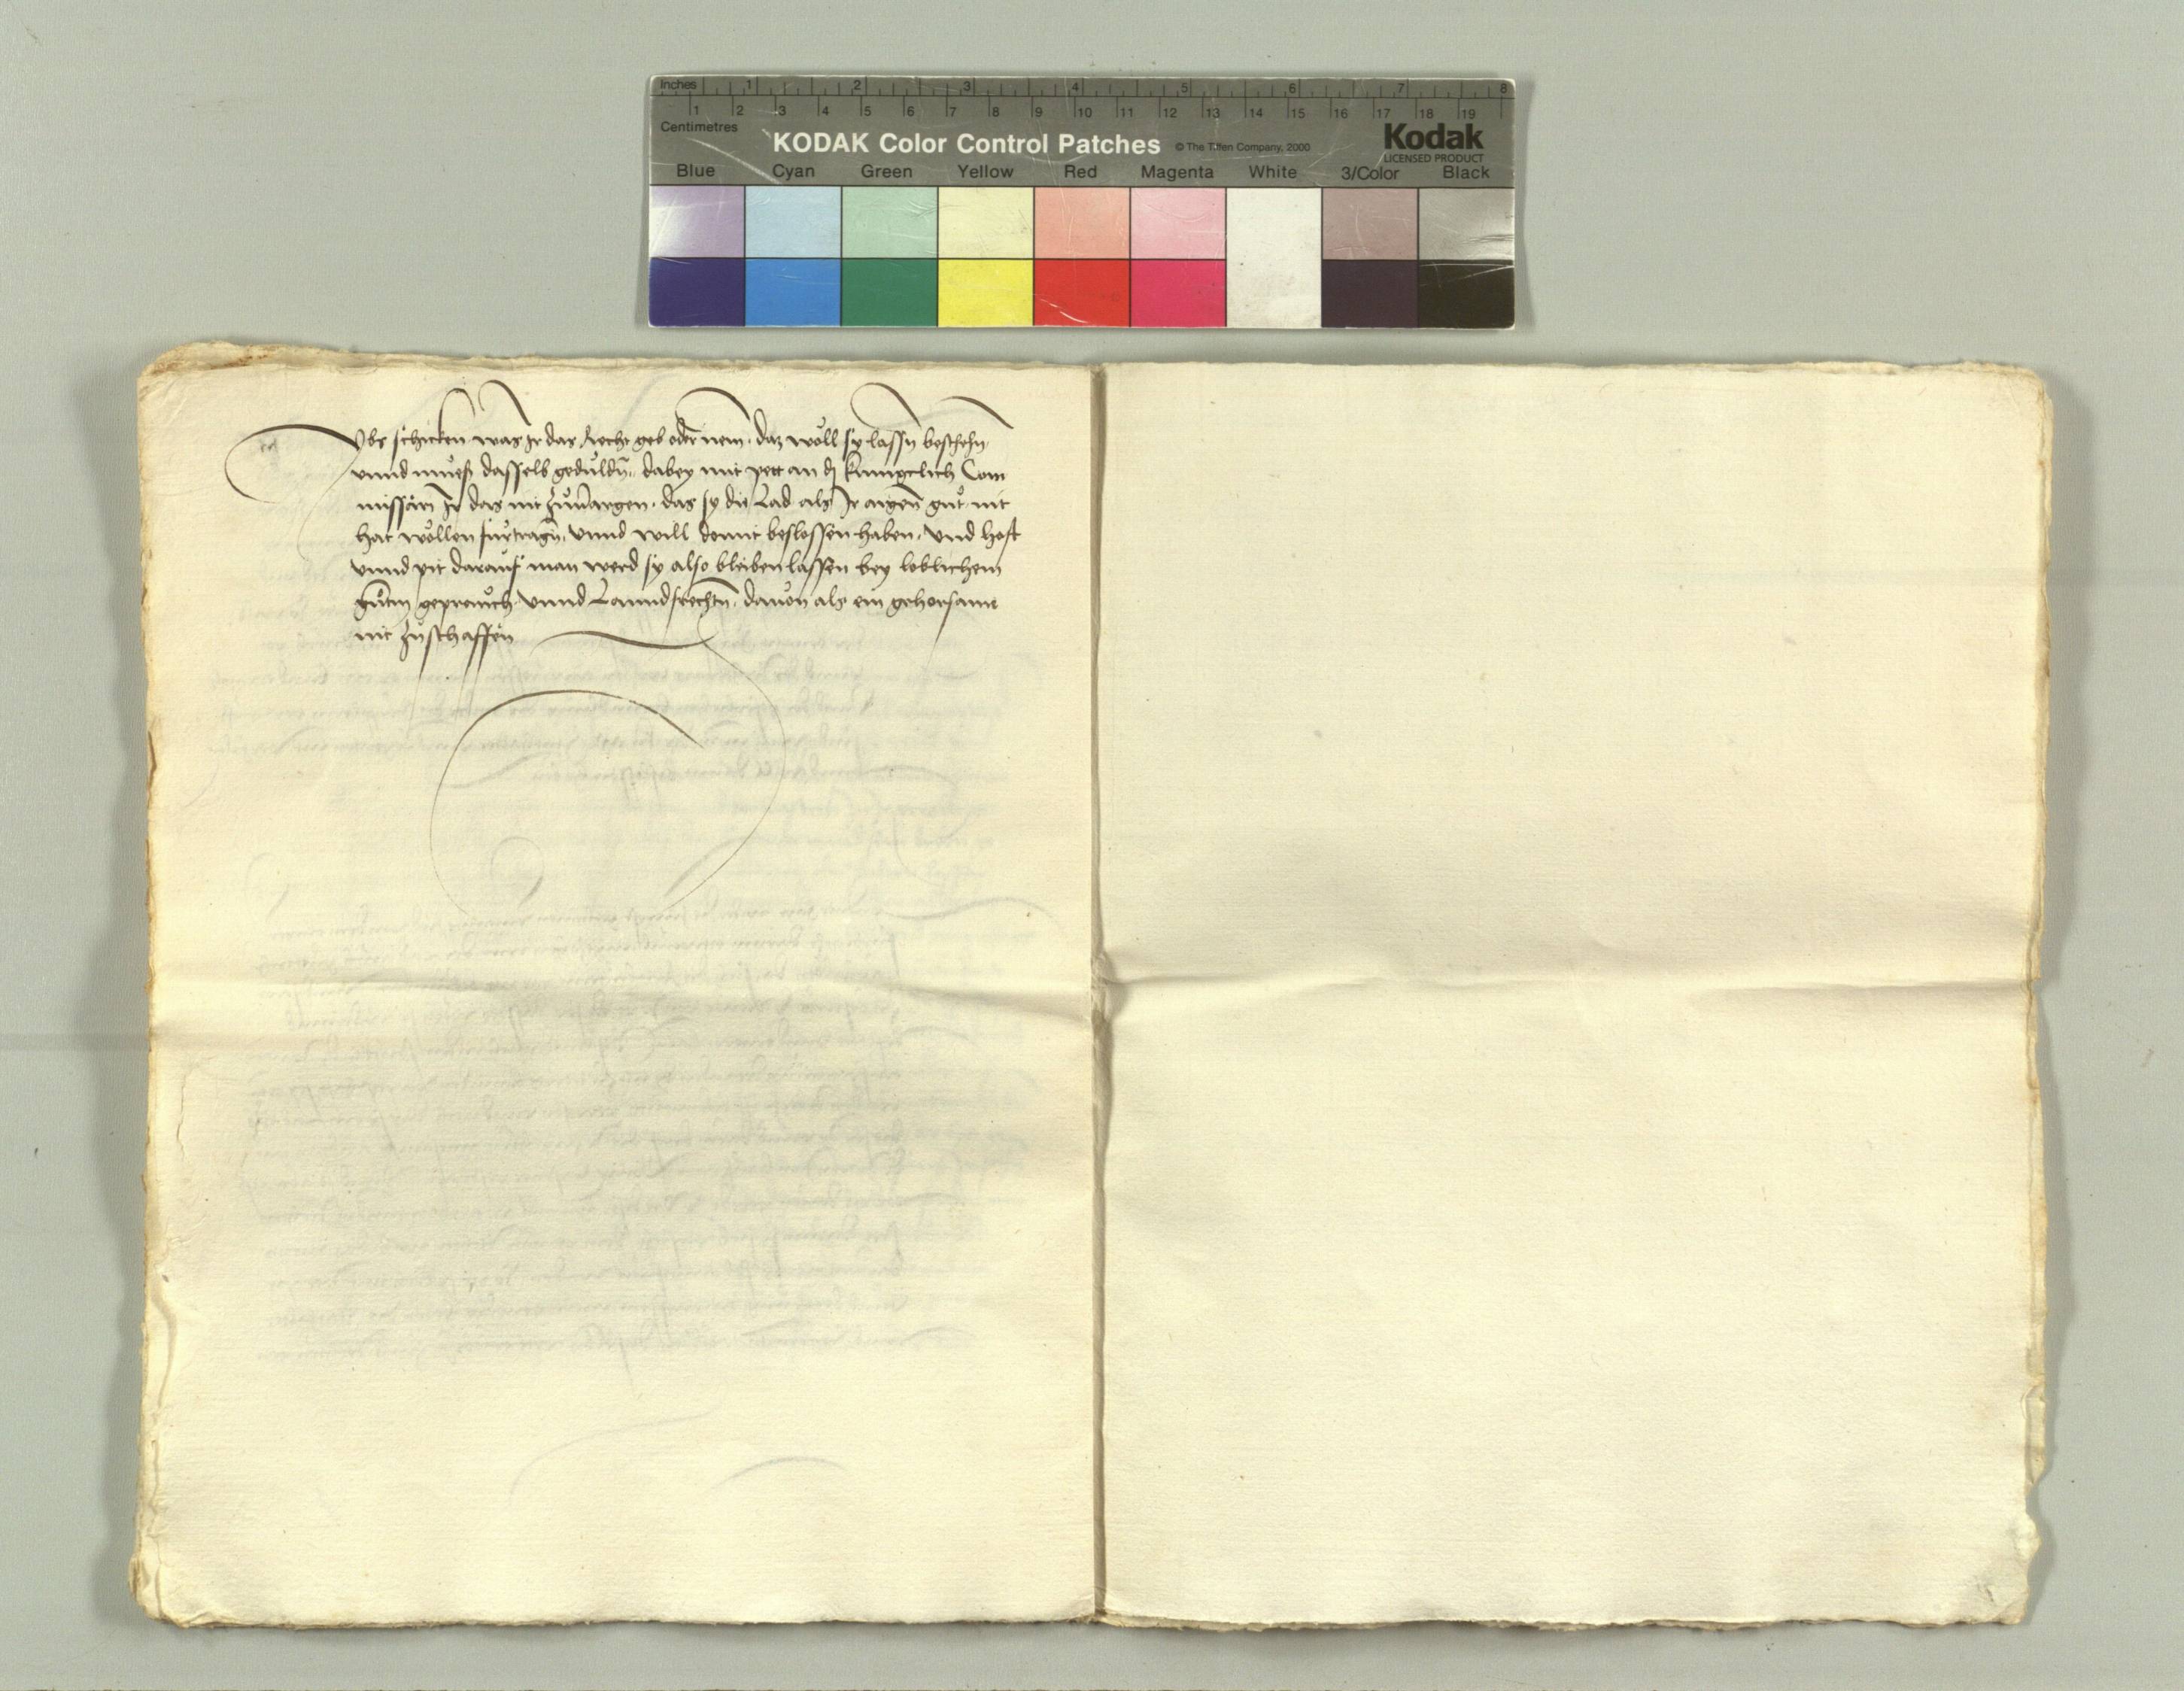 Inches 1 2 3 4 5 6 7 8
1 2 3 4 5 6 7 8 9 10 11 12 13 14 15 16 17 18 19
Centimetres
KODAK Color Control Patches © The Tiffen Company, 2000 Kodak
LICENSED PRODUCT
Blue Cyan Green Yellow Red Magenta White 3/Color Black
schicken was Ir das Recht geb oder nem, daz wöll sy lassn beschehn
vnnd mueß dasselb geduldn, dabey mit pett an di kunigclich Com
missarn Ir das nit zuuerargen, das sy die Lad als Ir aigen gut nit
hat wöllen furtragn, vnnd will domit beslossen haben, vnd hoft
vnnd pit darauf man werd sy also bleiben lassen bey loblichem
gutm geprauch vnnd Lanndsrechtn, dauon als ein gehorsame
nit zuschaffen